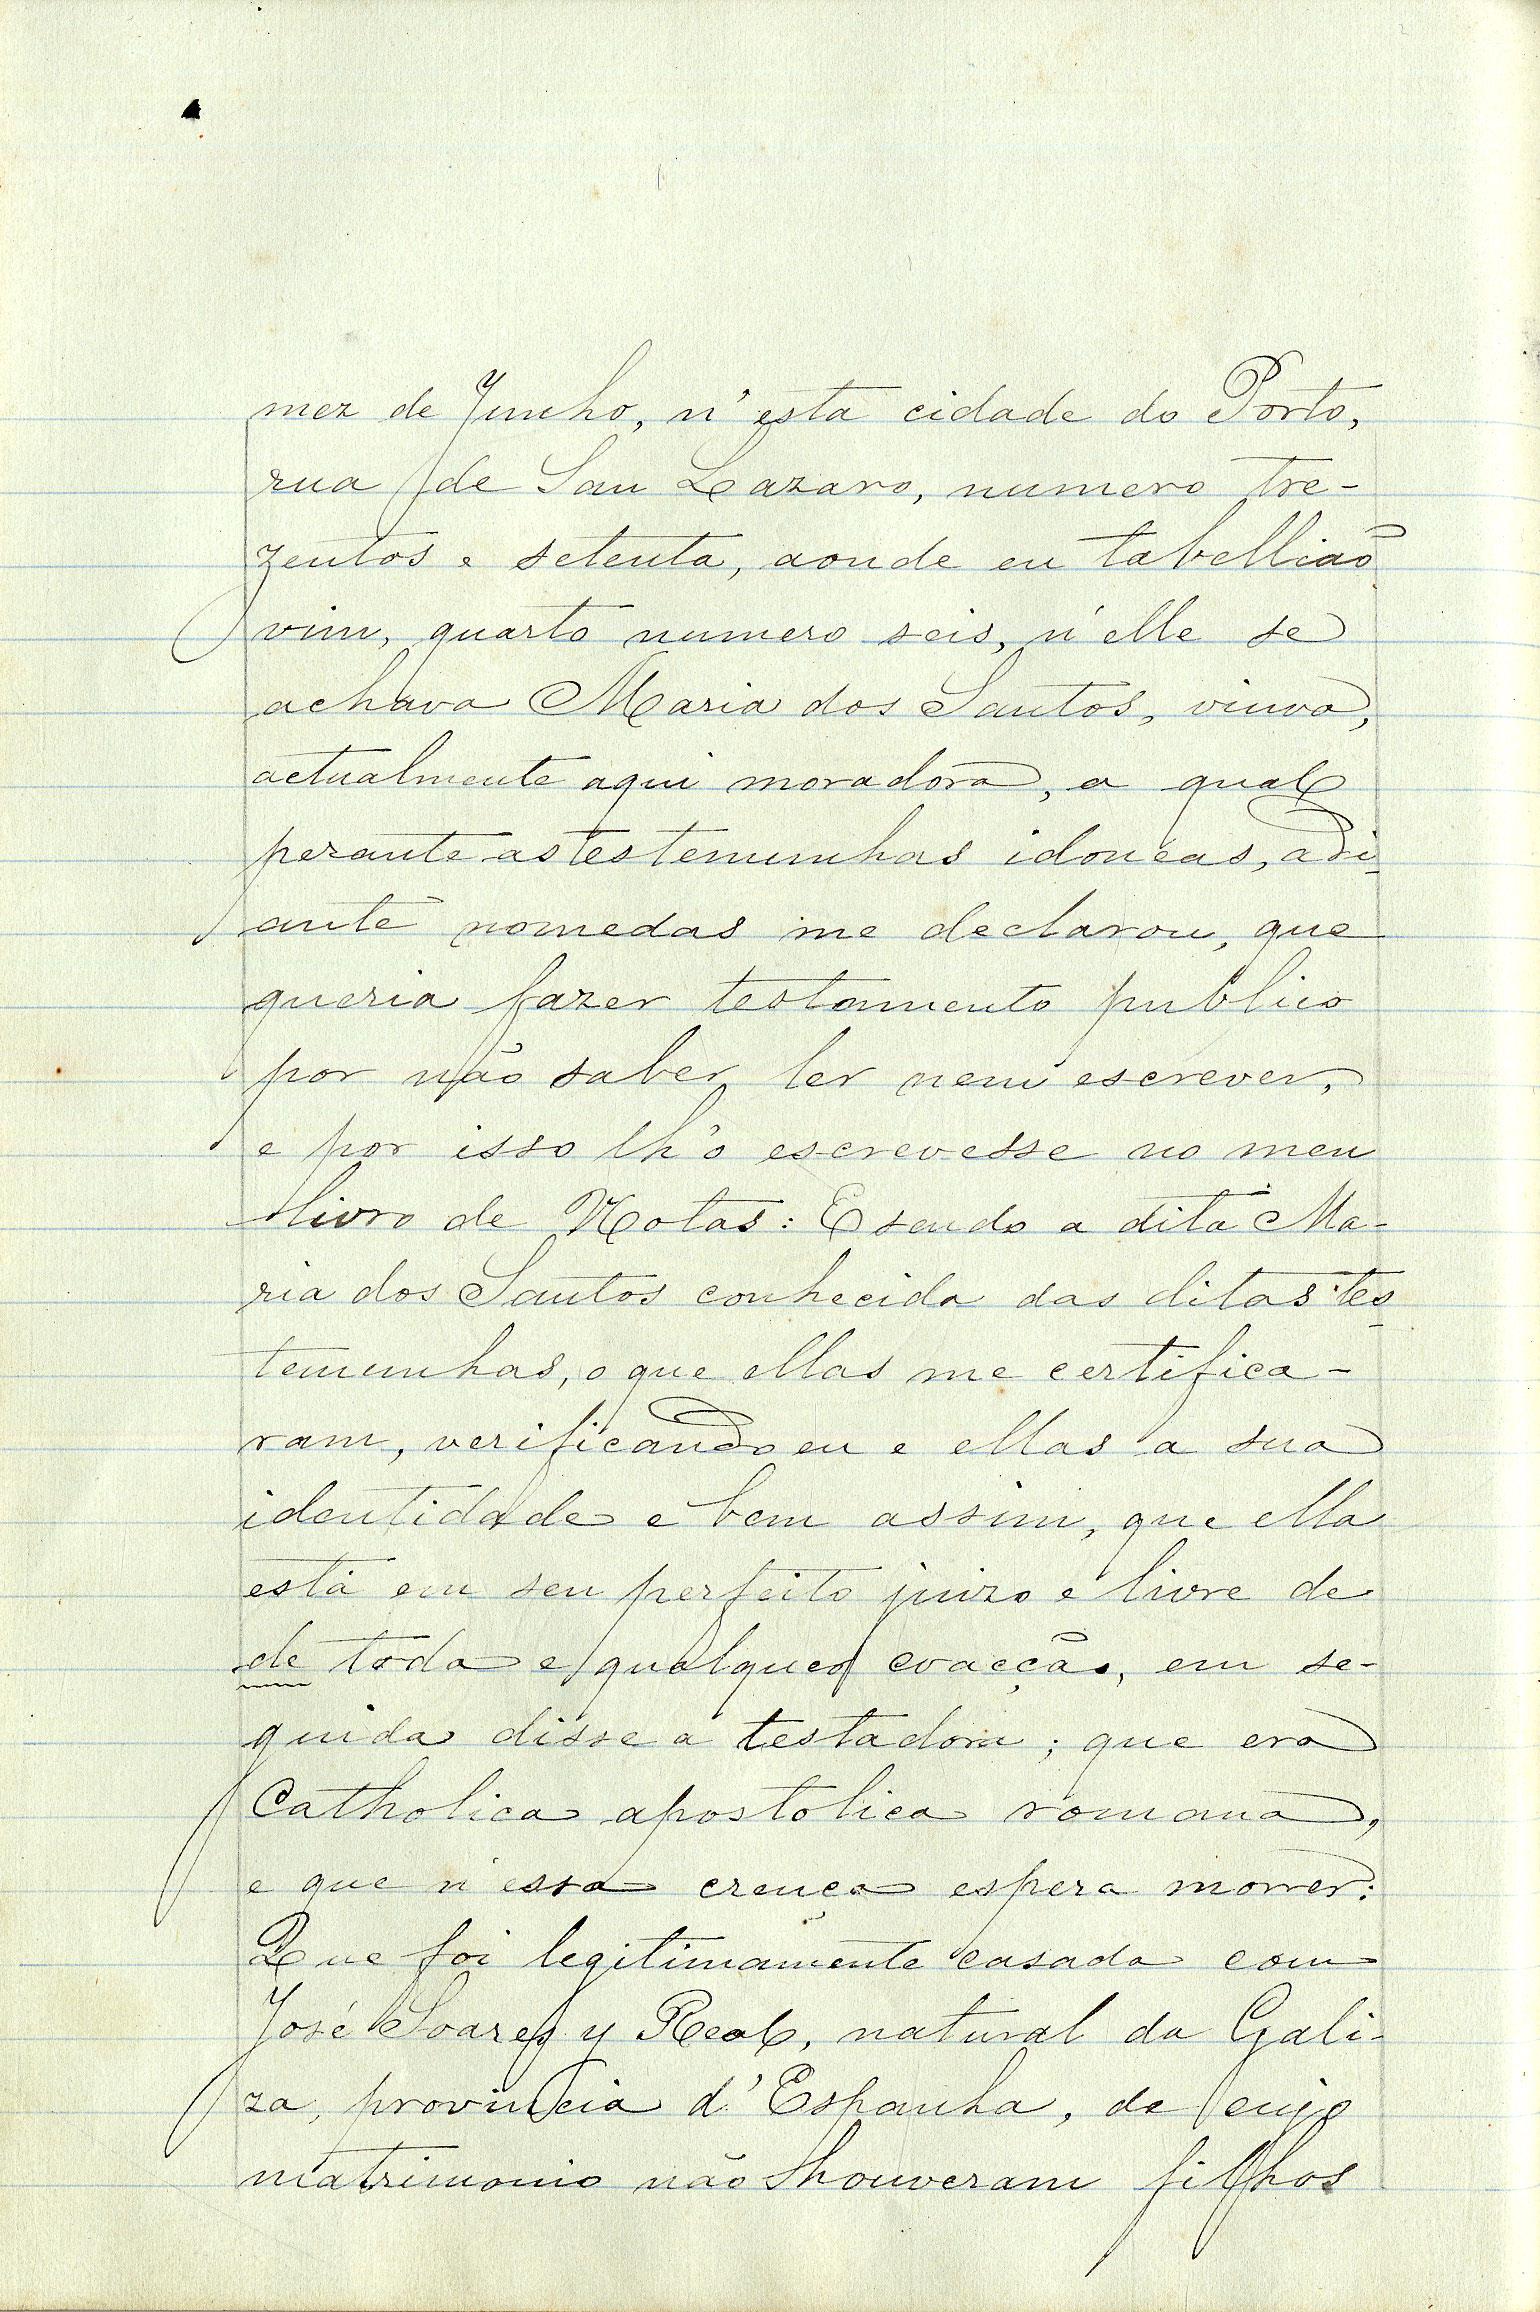 mez de Junho, n'esta cidade do Porto,
rua de San Lazaro, numero tre-
zentos e setenta, aonde eu tabellião
vim, quarto numero seis, n'elle se
achava Maria dos Santos, viuva,
actualmente aqui moradora, a qual
perante as testemunhas idoneas, adi-
ante nomedas me declarou, que
queria fazer testamento publico
por não saber ler nem escrever,
e por isso lh'o escrevesse no meu
livro de Notas: E sendo a dita Ma-
ria dos Santos conhecida das ditas tes-
temunhas, o que ellas me certifica-
ram, verificando eu e ellas a sua
identidade e bem assim, que ella
está em seu perfeito juizo e livre de
de toda e qualquer coacção, em se-
guida disse a testadora; que era
Catholica apostolica romana,
e que n'essa crença espera morrer:
Que foi legitimamente casada com
José Soares y Real, natural da Gali-
za, provincia d'Espanha, de cujo
matrimonio não houveram filhos